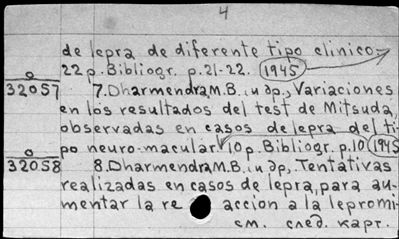 4
de lepra de diferente tipo clinico-
22 p. Bibliogr. p.21-22. 1945
32057 7. Dharmendra M.B. и др., Variaciones
en los resultados del test de Mitsuda,
observadas en casos de lepra del ti-
po neuro-macular. 10 p. Bibliogr. p.10 1945
32058 8. Dharmendra M.B. и др., Tentativas
realizadas en casos de lepra, para au-
mentar la re accion a la lepromi-
см. след. карт.